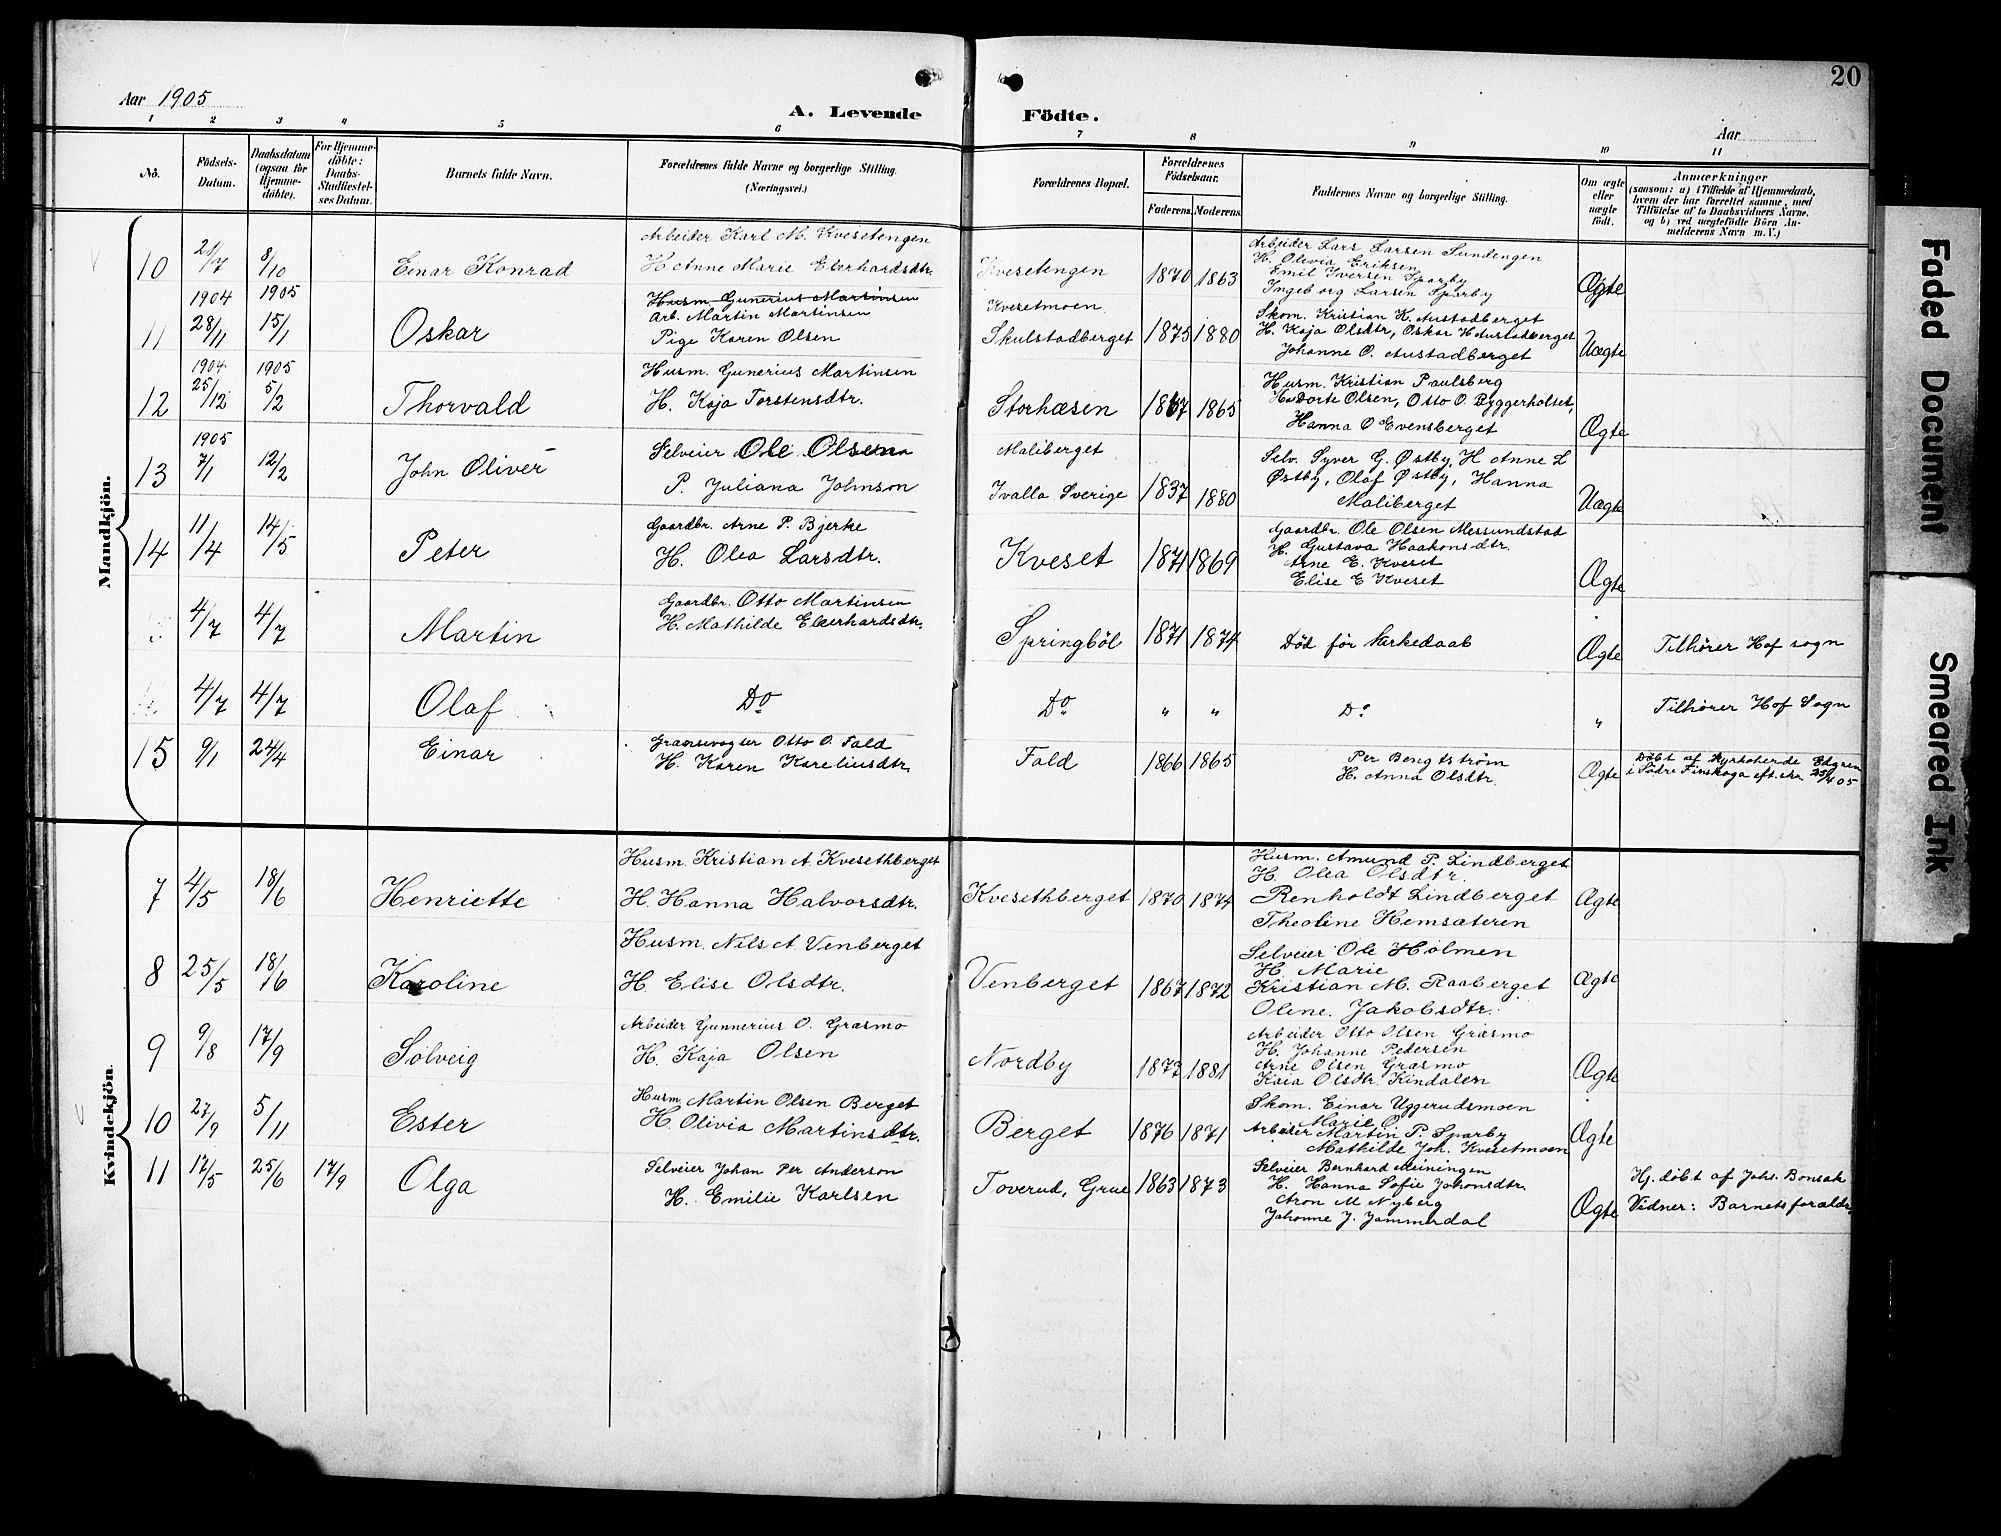 20
Aar 1905
A. Levende Födte.
Aar
1 2 3 4 5 6 7 8 9 10 11
No.
Födsels-Datum.
Daabsdatum (ogsaa for Hjemmedöbte).
For Hjemmedöbte: Daabs-Stadfæstelses Datum.
Barnets fulde Navn.
Forældrenes fulde Navne og borgerlige Stilling. (Næringsvei.)
Forældrenes Bopæl.
Forældrenes Födselsaar.
Faderens. Moderens.
Faddernes Navne og borgerlige Stilling.
Om ægte eller uægte födt.
Anmærkninger
(saasom: a) i Tilfælde af Hjemmedaab, hvem der har forrettet samme, med Tilföielse af to Daabsvidners Navne, og b) ved uægtefödte Börn Anmelderens Navn m. V.)
Mandkjön.
10 21/7 8/10 Einar Konrad
Arbeider Karl M. Kvesetengen
H Anne Marie Ekerhardsdtr.
Kvesetengen 1870 1863
Arbeider Lars Larsen Sundengen
H. Olevia Eriksen
Emil Iversen Sparby
Ingeborg Larsen Sparby
Ægte
1904 1905
11 28/11 15/1 Oskar
Husm. Gunerius Martinsen
Arb. Martin Martinsen
Pige Karen Olsen
Kvesetmoen
Skulstadberget 1875 1880
Skom. Kristian K. Austadberget
H. Kaja Olsdtr, Oskar H Austadberget
Johanne O. Austadberget
Uægte
1904 1905
12 25/12 5/2 Thorvald
Husm. Gunerius Martinsen
H. Kaja Torstensdtr.
Storhæsen 1867 1865
Husm. Kristian Paulsberg
H. Dorte Olsen, Otto O. Byggerholset,
Hanna O Evensberget
Ægte
1905
13 7/1 12/2 John Oliver
Selveier Ole Olsen
P. Juliana Johnson
Maliberget
Ivalla Sverige 1837 1880
Selv. Syver G. Østby, H Anne L
Østby, Olaf Østby, Hanna
Maliberget
Uægte
14 11/4 14/5 Peter
Gaardbr. Arne P. Bjerke
H. Olea Larsdtr.
Kveset 1871 1869
Gaardbr. Ole Olsen Messundstad
H. Gustava Haakonsdtr.
Arne E. Kveset
Elise E Kveset
Ægte
4/7 4/7 Martin
Gaardbr. Otto Martinsen
H. Mathilde Ekerhardsdtr.
Springböl 1871 1874
Död för kirkedaab
Ægte
Tilhörer Hof sogn
4/7 4/7 Olaf
Do Do " " Do "
Tilhörer Hof Sogn
15 9/1 24/4 Einar
Grænsevogter Otto O. Fald
H. Karen Kareliusdtr.
Fald 1866 1865
Per Bengtström
H. Anna Olsdtr.
Ægte
Döbt af Kyrkoherde Edgren
i Södre Finskoga
Kvindekjön.
7 4/5 18/6 Henriette
Husm. Kristian A. Kvesethberget
H. Hanna Halvorsdtr.
Kvesethberget 1870 1874
Husm. Amund P. Lindberget
H. Olea Olsdtr.
Renholdt Lindberget
Theoline Hemsæteren
Ægte
8 25/5 18/6 Karoline
Husm. Nils A. Venberget
H. Elise Olsdtr.
Venberget 1867 1872
Selveier Ole Holmen
H. Marie
Kristian M. Raaberget
Oline Jakobsdtr.
Ægte
9 9/8 17/9 Solveig
Arbeider Gunnerius O. Grasmo
H. Kaja Olsen
Nordby 1873 1881
Arbeider Otto Olsen Grasmo
H. Johanne Pedersen
Arne Olsen Grasmo
Kaia Olsdtr. Kindalen
Ægte
10 27/9 5/11 Ester
Husm. Martin Olsen Berget
H Olivia Martinsdtr.
Berget 1876 1871
Skom. Einar Uggerudsmoen
Marie O.
Arbeider Martin P. Sparby
Mathilde Joh. Kvesetmoen
Ægte
11 17/5 25/6 17/9 Olga
Selveier Johan Per Anderson
H. Emilie Karlsen
Toverud, Grue 1863 1873
Selveier Bernhard Meiningen
H. Hanna Sofie Johansdtr.
Aron M Nyberg
Johanne J. Jammerdal
Ægte
Hj. döbt af Johs. Bonsak
Vidner: Barnets foræld.
Faded Document
Smeared Ink